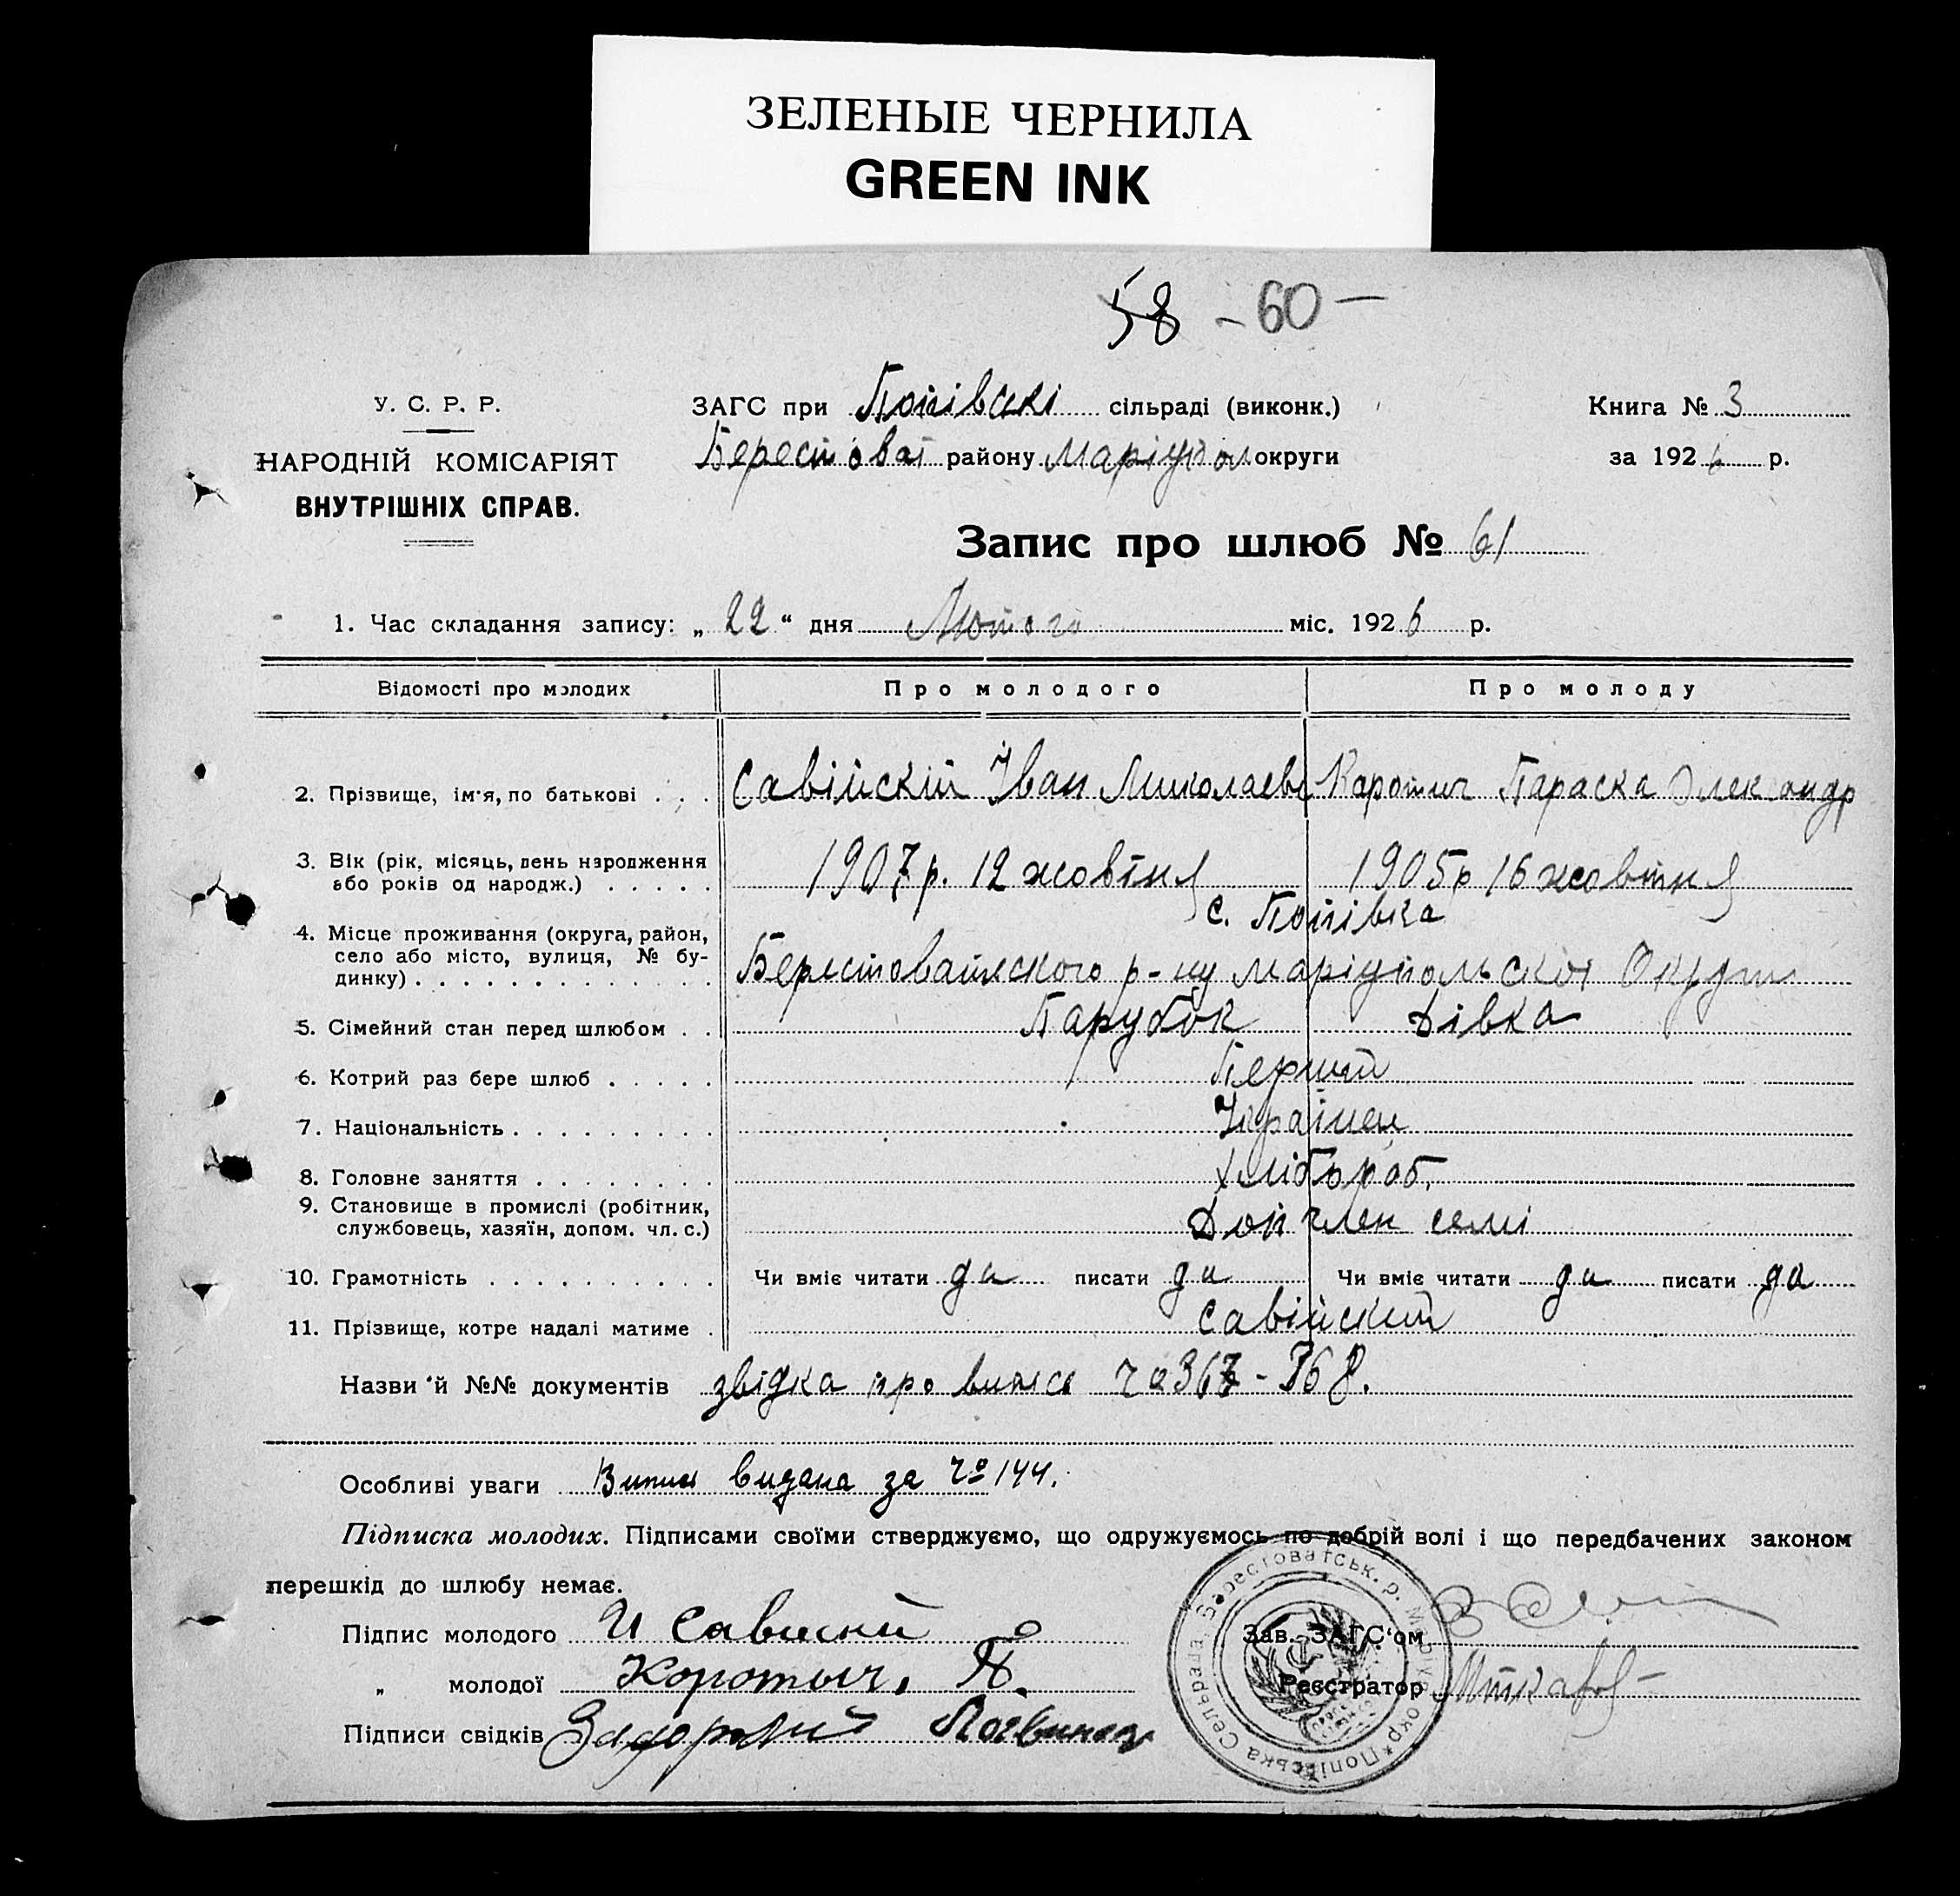 ЗЕЛЕНЫЕ ЧЕРНИЛА
GREEN INK
58 - 60 -
У. С. Р. Р.
НАРОДНІЙ КОМІСАРІЯТ
ВНУТРІШНІХ СПРАВ.
ЗАГС при Попівскі сільраді (виконк.)
Берестоват району Маріупол округи
Книга № 3
за 1926 р.
Запис про шлюб № 61
1. Час складання запису: „ 22 “ дня Лютого міс. 1926 р.
Відомості про молодих Про молодого Про молоду
2. Прізвище, ім'я, по батькові . . . Савійскій Іван Миколаев Каротич Параска Олександр
3. Вік (рік, місяць, день народження 1907 р. 12 жовтня 1905 р 16 жовтня
або років од народж.) . . . . .
с. Попівка
4. Місце проживання (округа, район,
село або місто, вулиця, № бу- Берестоватского р-ну Маріупольскоі Округи
динку) . . . . . . . . . . . . . .
5. Сімейний стан перед шлюбом . . Парубок Дівка
6. Котрий раз бере шлюб . . . . . Перший
7. Національність . . . . . . . . . Українец
8. Головне заняття . . . . . . . . Хлібороб.
9. Становище в промислі (робітник,
службовець, хазяїн, допом. чл. с.) Доп член семі
10. Грамотність . . . . . . . . . . Чи вміє читати да писати да Чи вміє читати да писати да
11. Прізвище, котре надалі матиме . Савійскій
Назви й №№ документів звідка про 367 - 368.
Особливі уваги Випис видана за № 144.
Підписка молодих. Підписами своїми стверджуємо, що одружуємось по добрій волі і що передбачених законом
перешкід до шлюбу немає.
Підпис молодого И Савиский
„ молодої Коротыч. П.
Підписи свідків Задорожний
Зав. ЗАГС'ом
Реєстратор
Попівська Сельрада, Берестоватськ. р. Маріюп. окр.